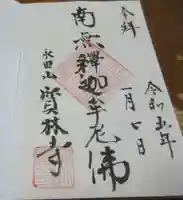 奉拜
令和五年
一月七日
南無釋迦牟尼佛
永田山
寳林寺